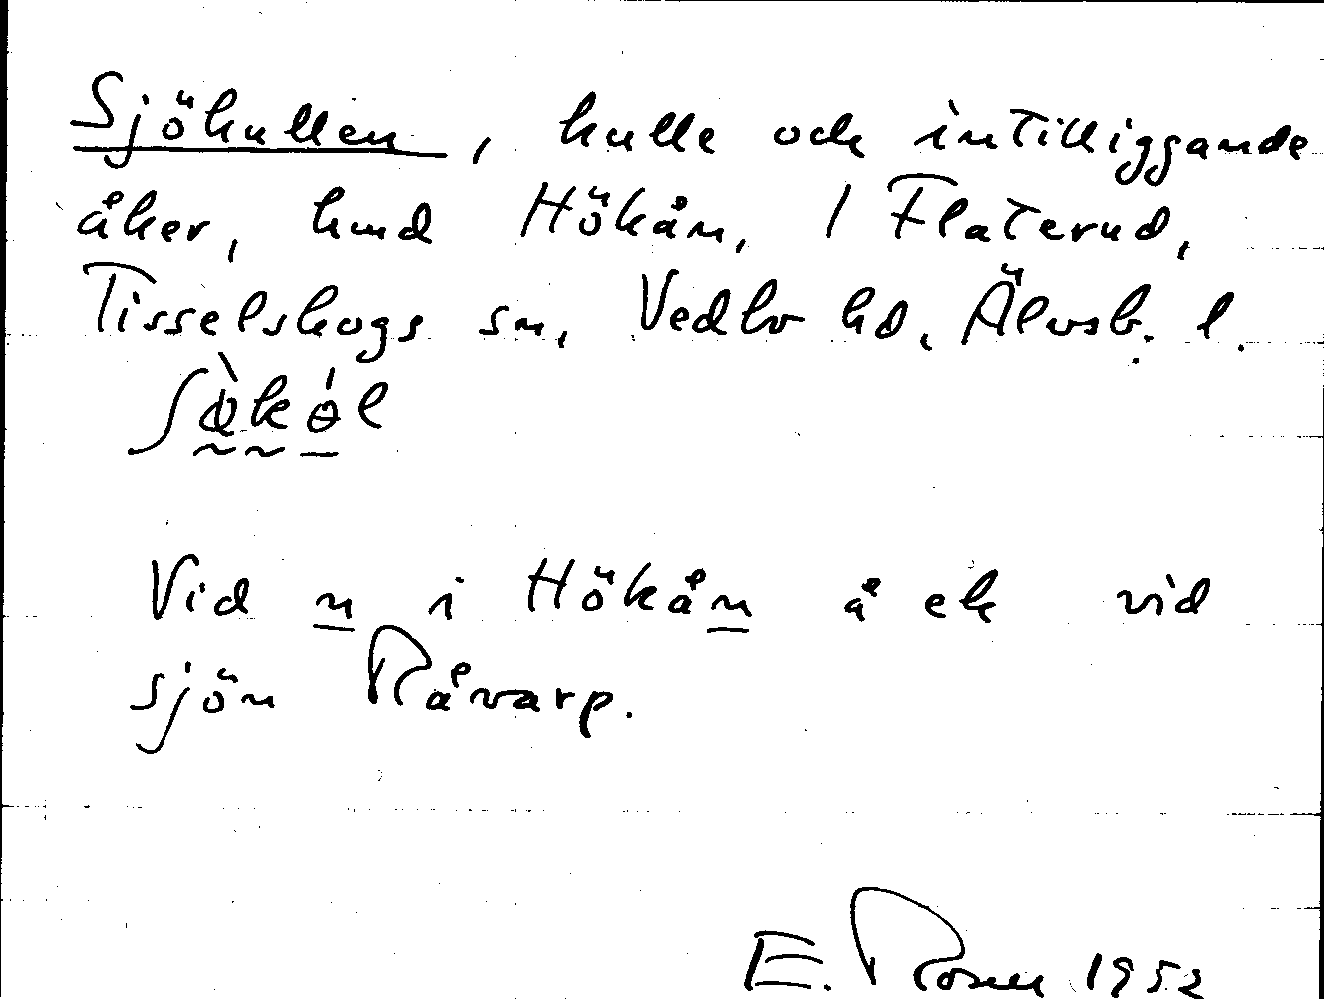 Sjökullen, kulle och intilliggande
åker, hmd Hökån, 1 Flaterud,
Tisselskogs sn, Vedbo hd, Älvsb. l.
Vid n i Hökån å ek vid
sjön Råvarp.
E. Rosell 1952